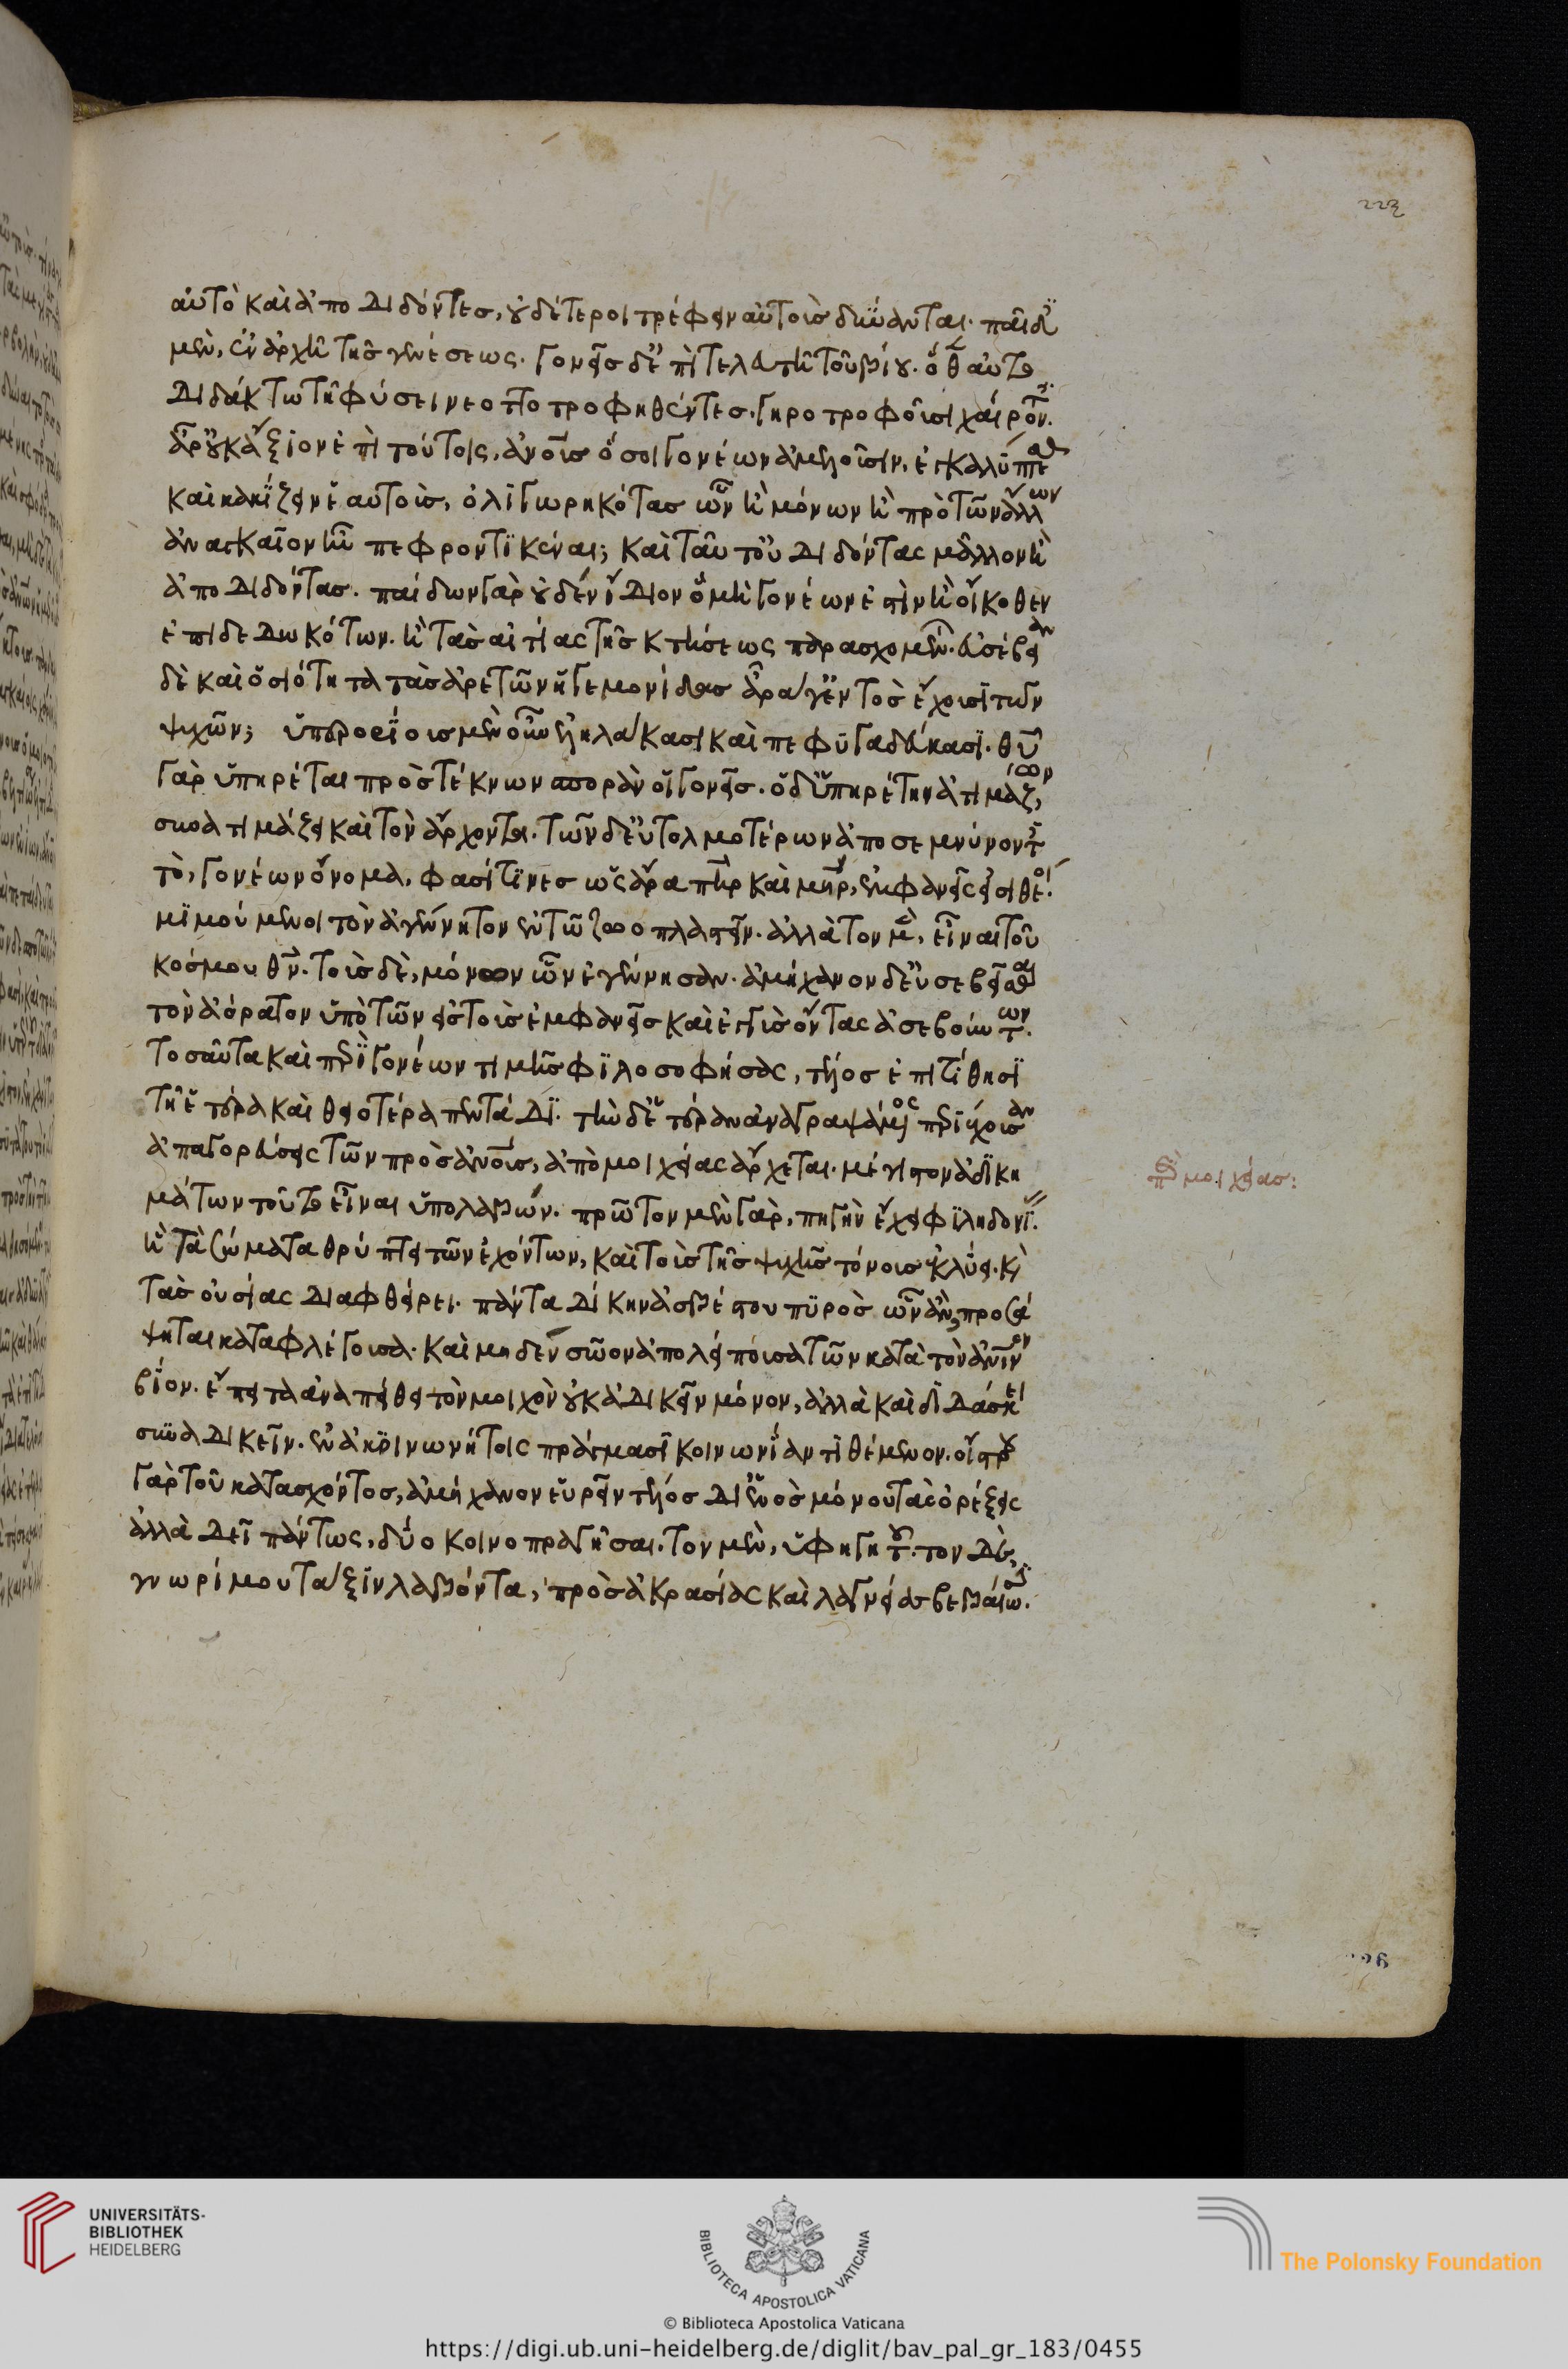 αὐτὸ καὶ ἀποδιδόντες, οὐδέτεροι τρέφειν αὐτοὺς δύνανται. παῖδ
μὲν, ἐν ἀρχῆ τῆς γενέσεως. γονεῖς δ' ἐπὶ τελευτῆ τοῦ βίου. ὅθ αὐτο
διδάκτω τῆ φύσει νεοττοτροφηθέντες. γηροτροφοῦσι χαίροντ.
ἆρ' οὐκ ἄξιον ἐπὶ τούτοις, ἀνους ὅσοι γονέων ἀμελοῦσιν, ἐγκαλύπτεσθαι
καὶ κακίζειν ἑαυτοὺς, ὀλιγωρηκότας ὧν ἢ μόνων ἢ πρὸ τῶν ἄλλων
ἀναγκαῖον ἦν πεφροντικέναι; καὶ ταῦτ' οὐ διδόντας μᾶλλον ἢ
ἀποδιδόντας. παίδων γὰρ οὐδὲν ἴδιον ὃ μὴ γονέων ἐστὶν ἢ οἴκοθεν
ἐπιδεδωκότων. ἢ τὰς αἰτίας τῆς κτήσεως παρασχομέν. εὐσέβειαν
δὲ καὶ ὁσιότητα τὰς ἀρετῶν ἡγεμονίδας ἆρά γ' ἐντὸς ἔχουσι τῶν
ψυχῶν; ὑπερορίους μὲν οὖν ἐληλάκασι καὶ πεφυγαδεύκασι. θυ
γὰρ ὑπηρέται πρὸς τέκνων σπορὰν οἱ γονεῖς. ὁ δ' ὑπηρέτην ἀτιμάζων,
συνατιμάζει καὶ τὸν ἄρχοντα. τῶν δ' εὐτολμοτέρων ἀποσεμνύνοντ
τὸ, γονέων ὄνομα, φασί τινες ὡς ἄρα πηρ καὶ μηρ, ἐμφανεῖς εἰσι θεοί.
μιμούμενοι τὸν ἀγέννητον ἐν τῶ ζωοπλαστεῖν. ἀλλὰ τὸν μὲν, εἶναι τοῦ
κόσμου θν. τοὺς δὲ, μόνων ὧν ἐγέννησαν. ἀμήχανον δ' εὐσεβεῖσθαι
τὸν ἀόρατον ὑπὸ τῶν εἰς τοὺς ἐμφανεῖς καὶ ἐγγὺς ὄντας ἀσεβούντων.
τοσαῦτα καὶ περὶ γονέων τιμῆς φιλοσοφήσας, τέλος ἐπιτίθησι
τῆ ἑτέρα καὶ θειοτέρα πεντάδι. τὴν δ' ἑτέραν ἀναγραψάμενος περιέχουσαν
ἀπαγορεύσεις τῶν πρὸς ἀνους, ἀπὸ μοιχείας ἄρχεται. μέγιστον ἀδικη
μάτων τοῦτο εἶναι ὑπολαβών. πρῶτον μὲν γὰρ, πηγὴν ἔχει φιληδονί.
ἣ τὰ σώματα θρύπτει τῶν ἐχόντων, καὶ τοὺς τῆς ψυχῆς τόνους ἐκλύει. κ
τὰς οὐσίας διαφθείρει. πάντα δίκην ἀσβέστου πυρὸς ὧν ἂν, προσά
ψηται καταφλέγουσα. καὶ μηδὲν σῶον ἀπολείπουσα τῶν κατὰ τὸν ἀνινον
βίον. ἔπειτα ἀναπείθει τὸν μοιχὸν οὐκ ἀδικεῖν μόνον, ἀλλὰ καὶ διδάσκει
συναδικεῖν. ἐν ἀκοινωνήτοις πράγμασι κοινωνίαν τιθέμενον. οἴστρου
γὰρ τοῦ κατασχόντος, ἀμήχανον εὑρεῖν τέλος δι' ἑνὸς μόνου τὰς ὀρέξεις
ἀλλὰ δεῖ πάντως, δύο κοινοπραγῆσαι. τὸν μὲν, ὑφηγητοῦ. τὸν δὲ,
γνωρίμου τάξιν λαβόντα, πρὸς ἀκρασίας καὶ λαγνείας βεβαίωσ.
περὶ μοιχείας:
UNIVERSITÄTS-
BIBLIOTHEK
HEIDELBERG
BIBLIOTECA APOSTOLICA VATICANA
The Polonsky Foundation
© Biblioteca Apostolica Vaticana
https://digi.ub.uni-heidelberg.de/diglit/bav_pal_gr_183/0455